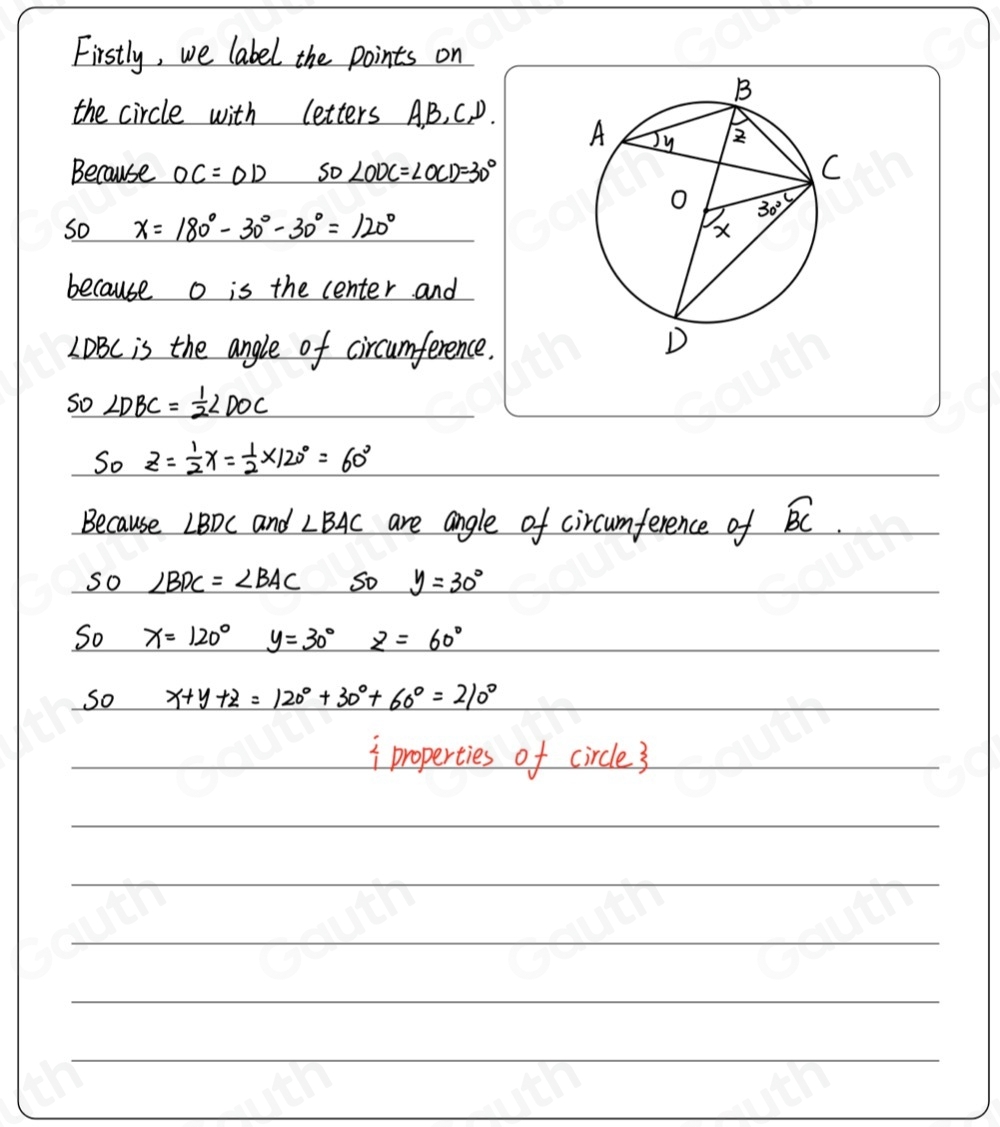 Firstly, we label the points on
the circle with letters A,B,C,D.
Because OC = OD so ∠ODC=∠OCD=30°
so x = 180° - 30° - 30° = 120°
because o is the center and
∠DBC is the angle of circumference.
so ∠DBC = 1/2∠DOC
So z = 1/2x = 1/2×120° = 60°
Because ∠BDC and ∠BAC are angle of circumference of B͡C.
so ∠BDC = ∠BAC so y = 30°
So x = 120° y = 30° z = 60°
so x+y+z = 120° + 30° + 60° = 210°
{properties of circle}
B
A
y
z
C
O
30°
x
D
Gauth